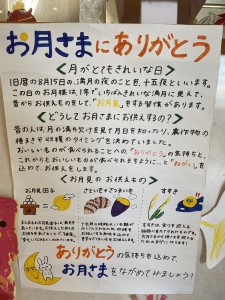 お月さまにありがとう
〈月がとてもきれいな日〉
旧暦の8月15日の、満月の夜のことを、十五夜といいます。
この日のお月様は、1年でいちばんきれいな満月に見えて、
昔からお供えものをして、「お月見」をする習慣があります。
〈どうしてお月さまにお供えするの？〉
昔の人は、月の満ち欠けを見て月日を知ったり、農作物の
種まきや収穫のタイミングを決めていました。
おいしいものが食べられることへの、「ありがとう」の気持ちと、
これからもおいしいものが食べられますように、と「ねがい」を
込めて、お供えをします。
〈お月見のお供えもの〉
お月見団子
さといもやさつまいも
すすき
ありがとうの気持ちを込めて、
お月さまをながめてみましょう！